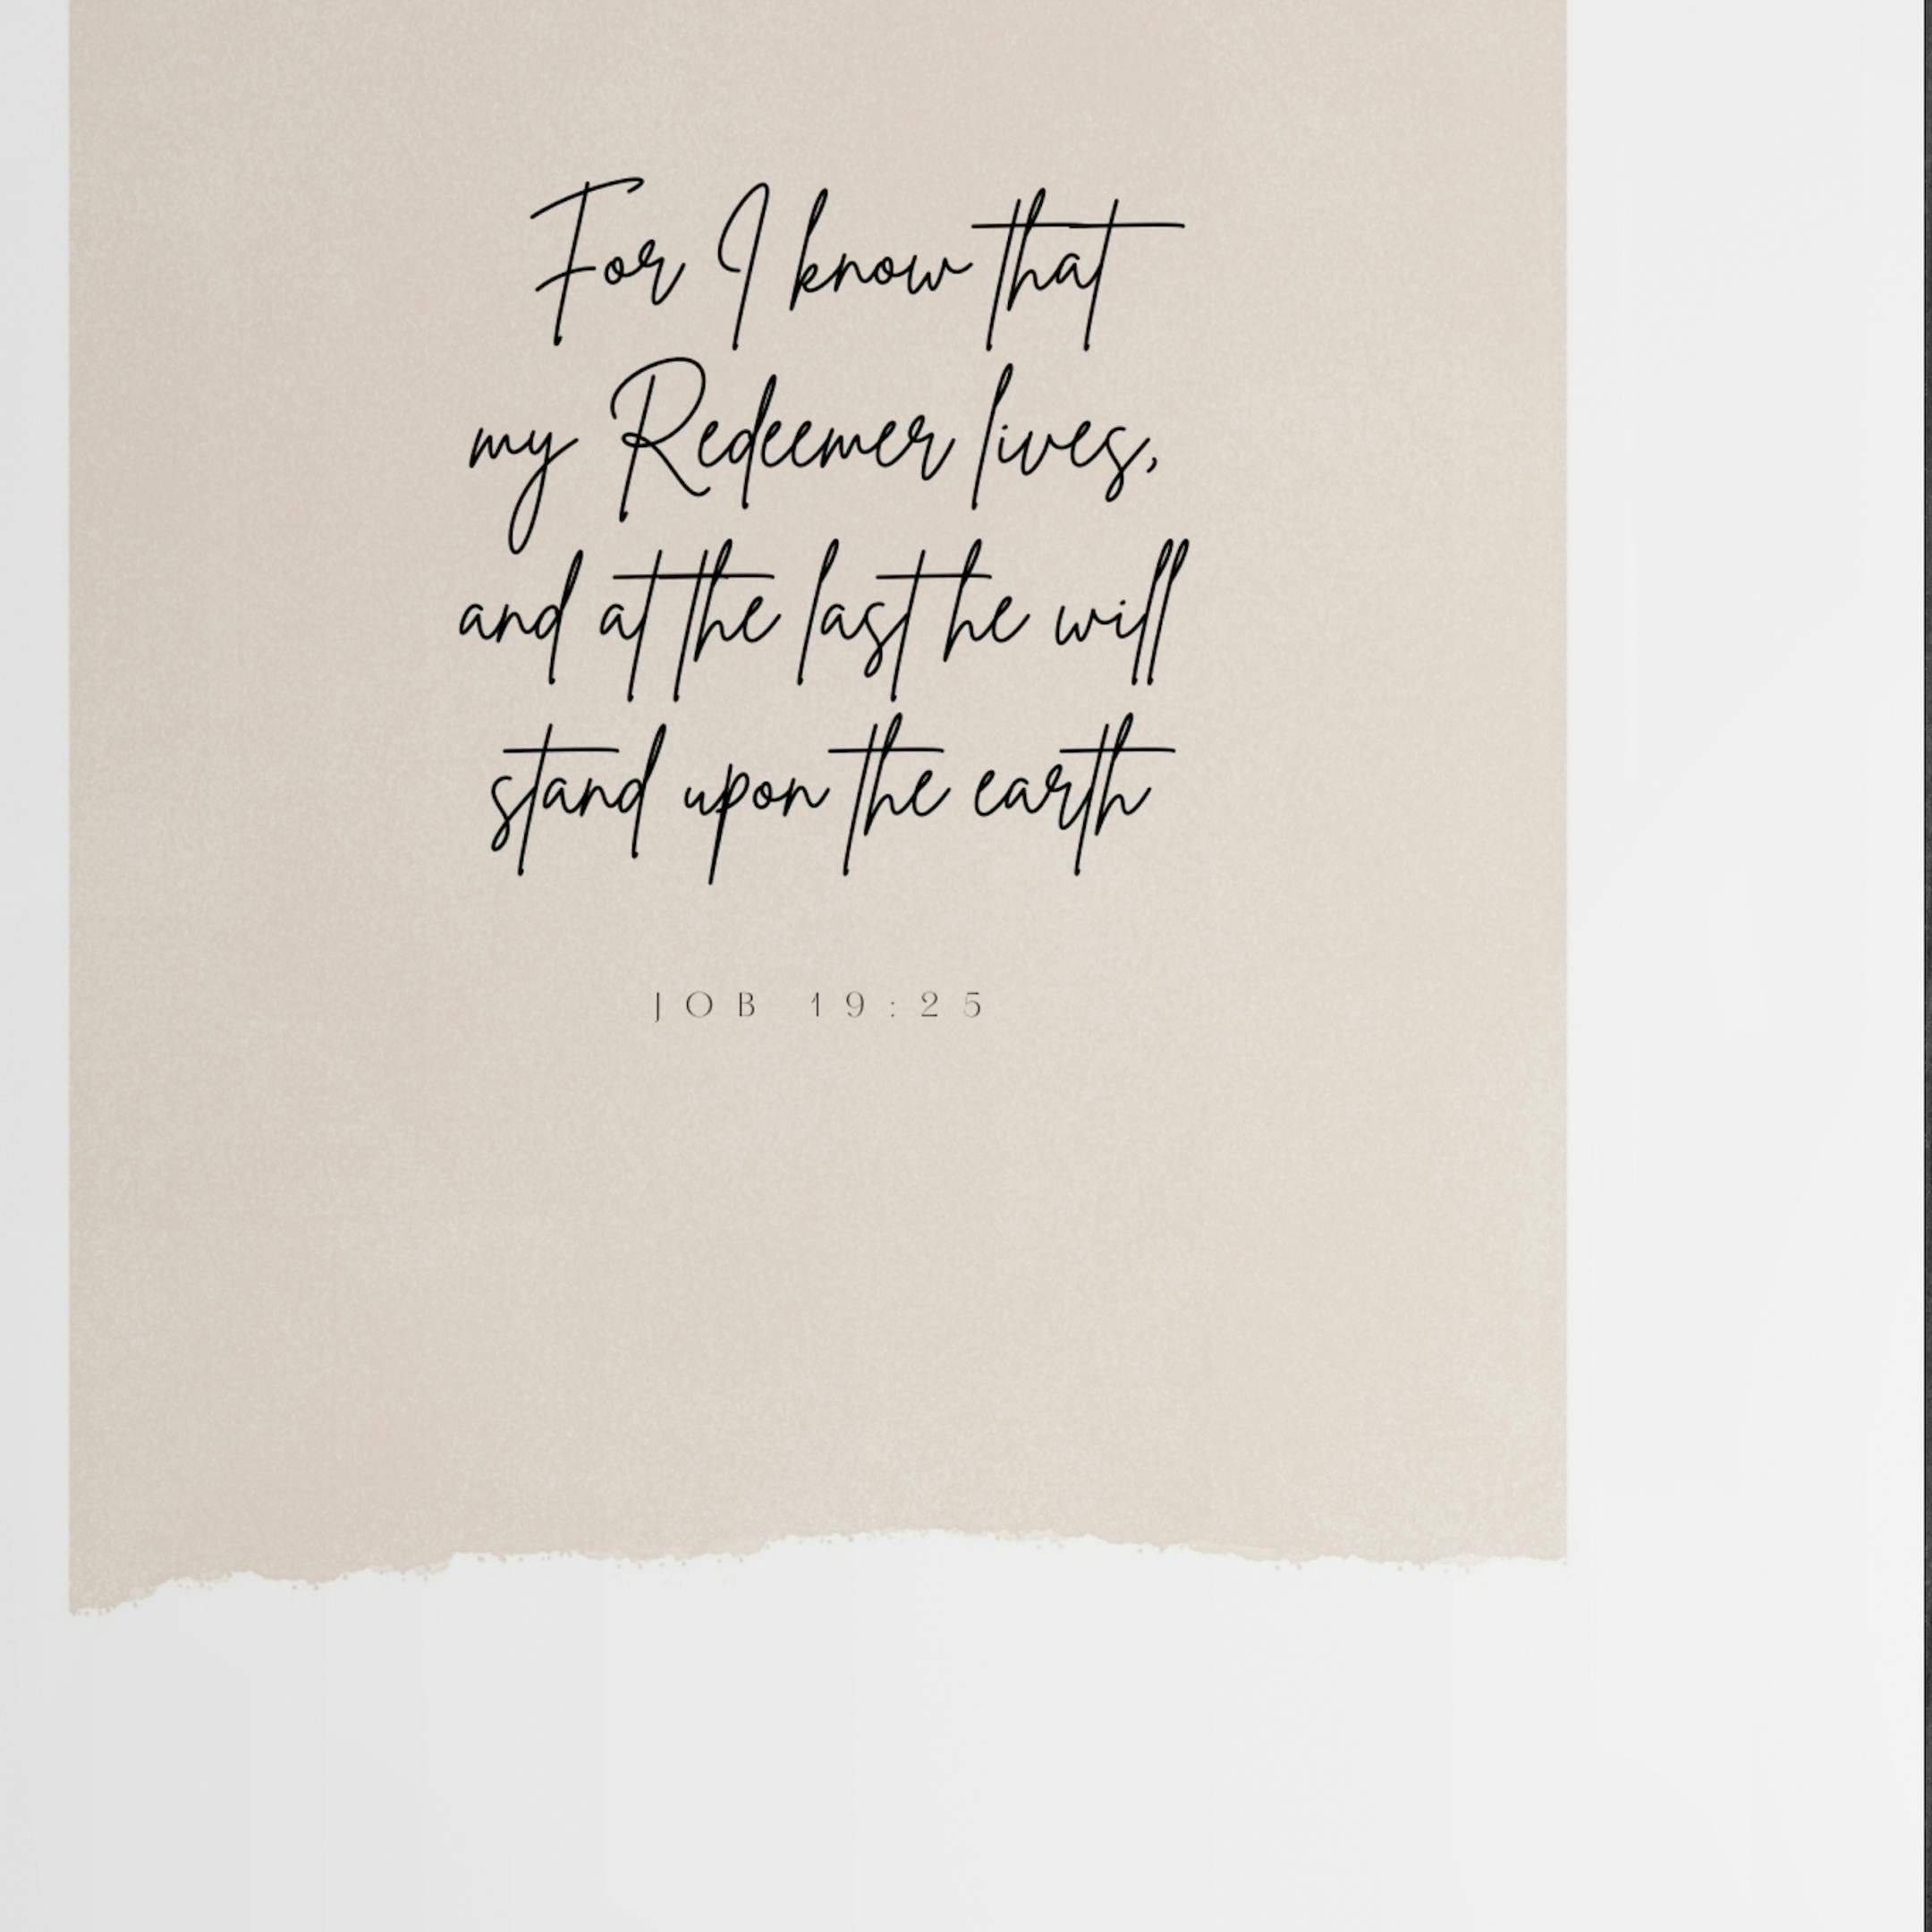 For I know that
my Redeemer lives,
and at the last he will
stand upon the earth
JOB 19:25